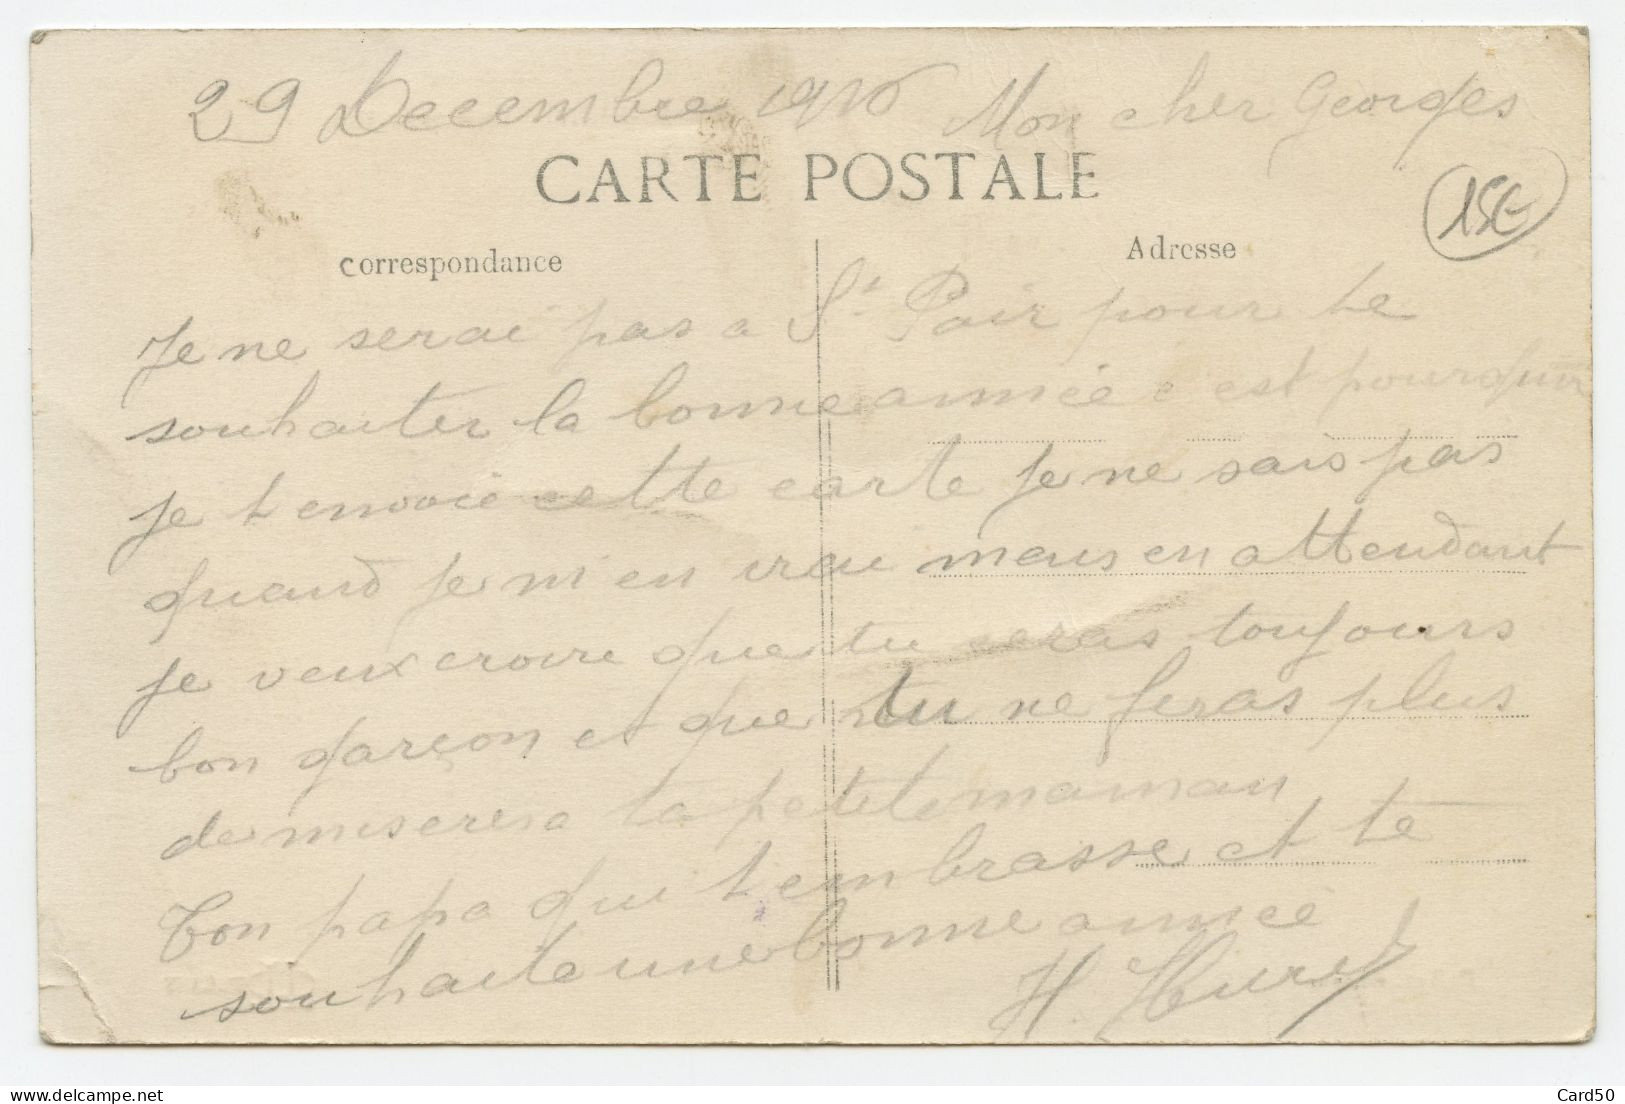 29 Decembre 1916 Mon cher Georges
CARTE POSTALE
15€
Correspondance
Adresse
Je ne serai pas a St Pair pour te
souhaiter la bonne année c est pourquoi
je t envoie cette carte je ne sais pas
quand je m en irai mais en attendant
je veux croire que tu seras toujours
bon garçon et que tu ne feras plus
de miseres a ta petite maman
Ton papa qui t embrasse et te
souhaite une bonne année
H.
Card50